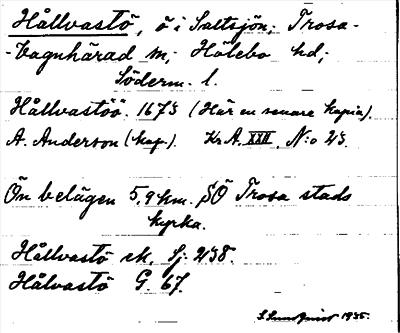 Hållvastö, ö i Saltsjön; Trosa-
-Vagnhärad m; Hölebo hd;
Söderm. l.
Hållvastöö. 1673 (Här en senare kopia).
A. Anderson (kop.). Kr.A. XXII. N:o 23.
Ön belägen 5,9 km. SÖ Trosa stads
kyrka.
Hållvastö ek, Sj: 238.
Hålvastö G. 67.
1935.